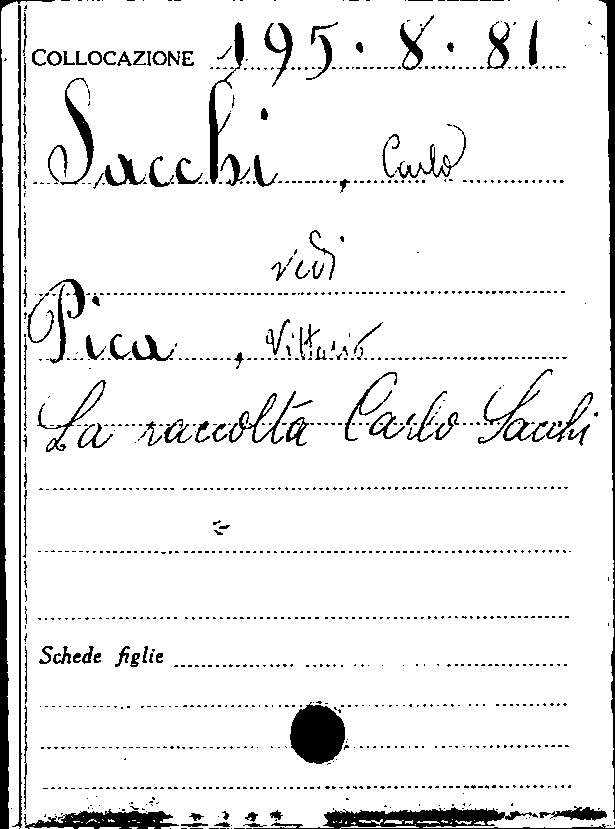 COLLOCAZIONE 195.8.81
Sacchi, Carlo
vedi
Pica, Vittorio
La raccolta Carlo Sacchi
Schede figlie